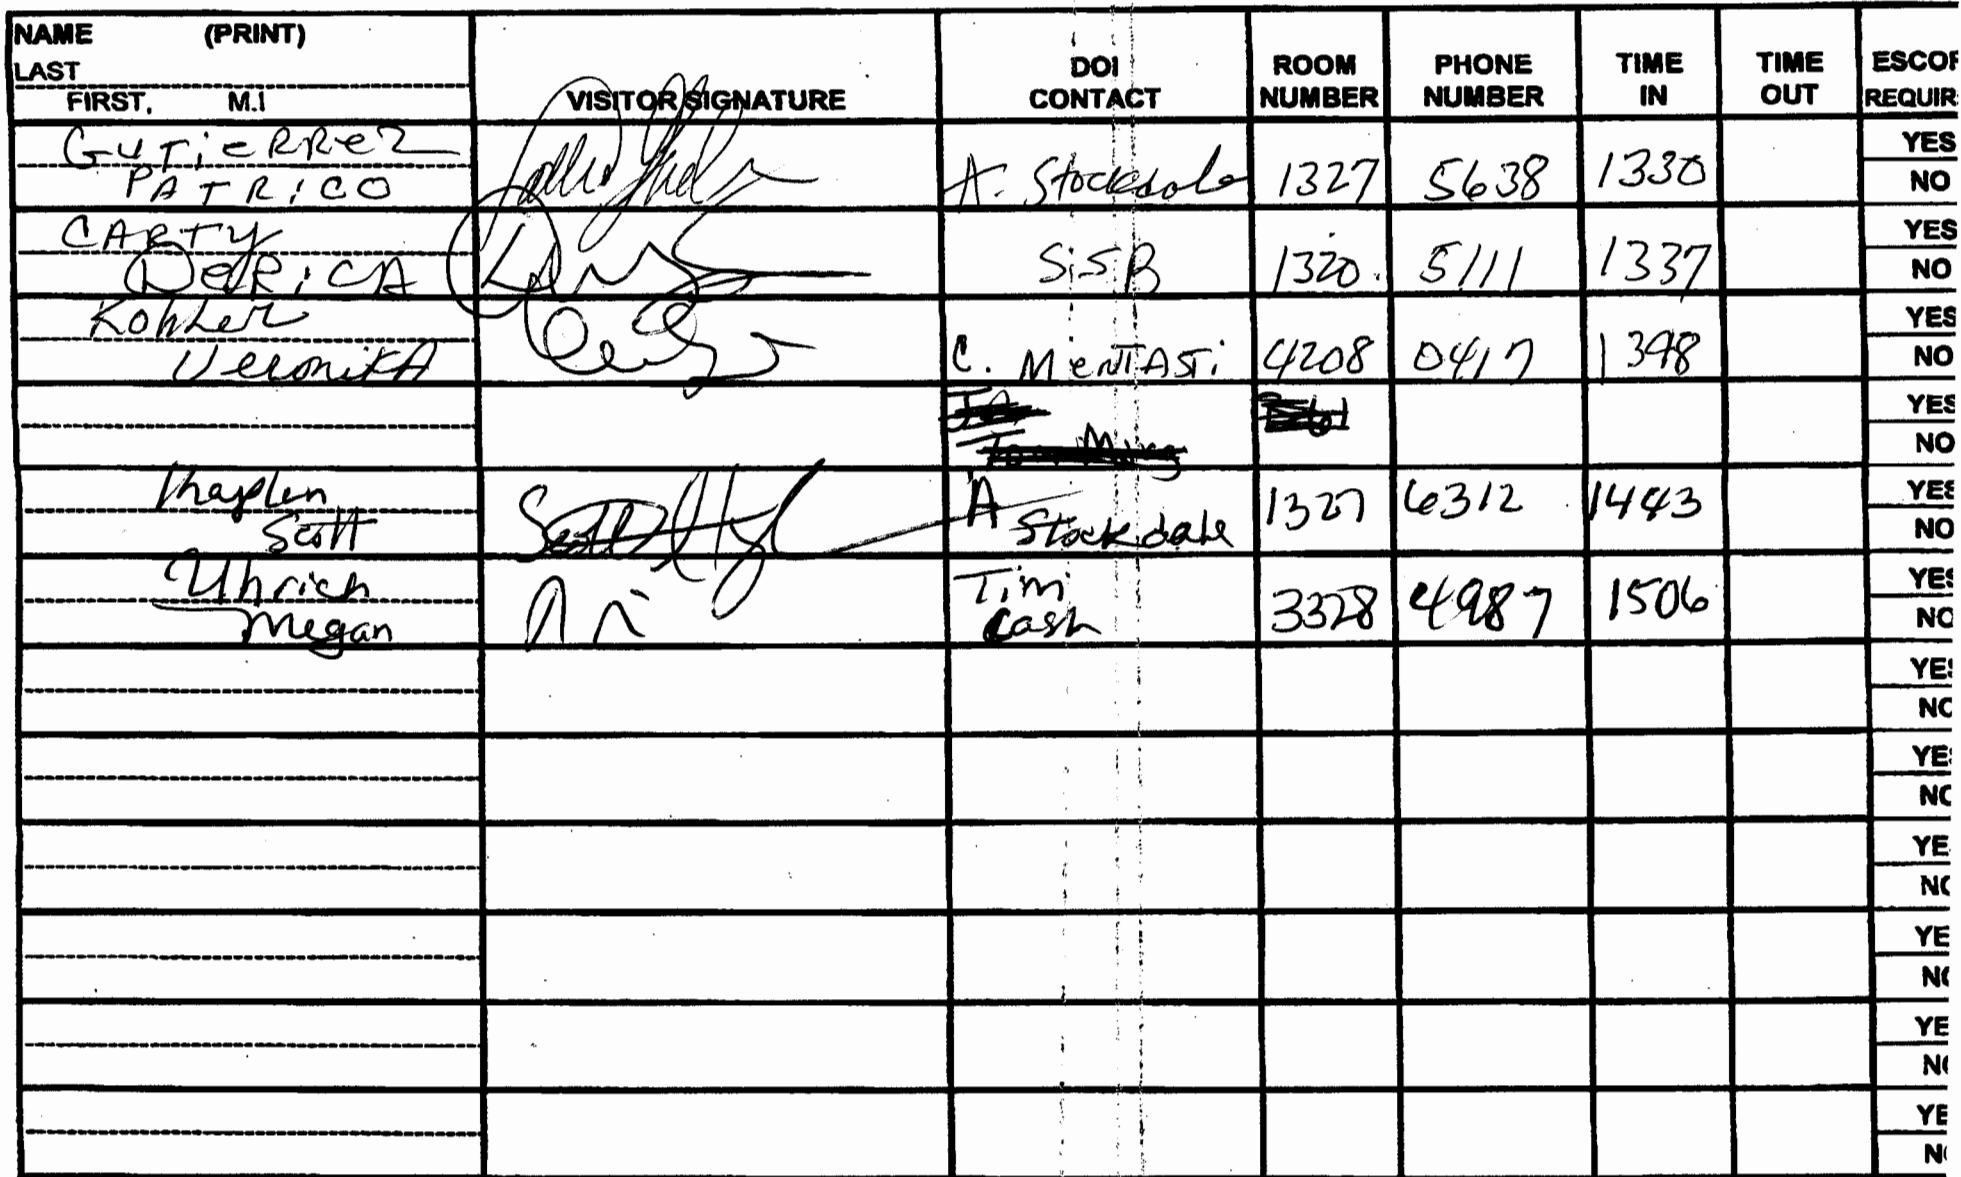 NAME (PRINT)
LAST
FIRST, M.I
VISITOR SIGNATURE
DOI
CONTACT
ROOM
NUMBER
PHONE
NUMBER
TIME
IN
TIME
OUT
ESCOR
REQUIR
GUTieRRez
PATRiCO
A. Stockdale 1327 5638 1330
YES
NO
CARTY
DeRiCA
SiSB 1320 5111 1337
YES
NO
Kohler
VeronikA
C. MenTASTi 4208 0417 1348
YES
NO
YES
NO
Scott
A
Stockdale
1327 6312 1443
YES
NO
Uhrich
Megan
Tim
Cash
3328 4987 1506
YES
NO
YES
NO
YES
NO
YE
NO
YE
NO
YE
NO
YE
NO